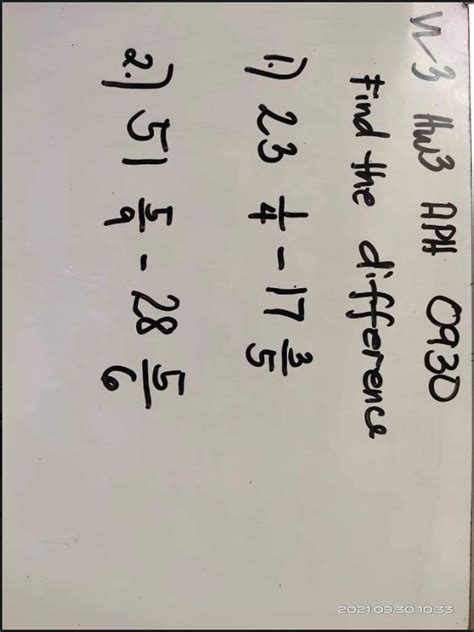 W3 HW3 APH 0930
Find the difference
1.) 23 1/4 - 17 3/5
2.) 51 5/9 - 28 5/6
2021.09.30 10:33